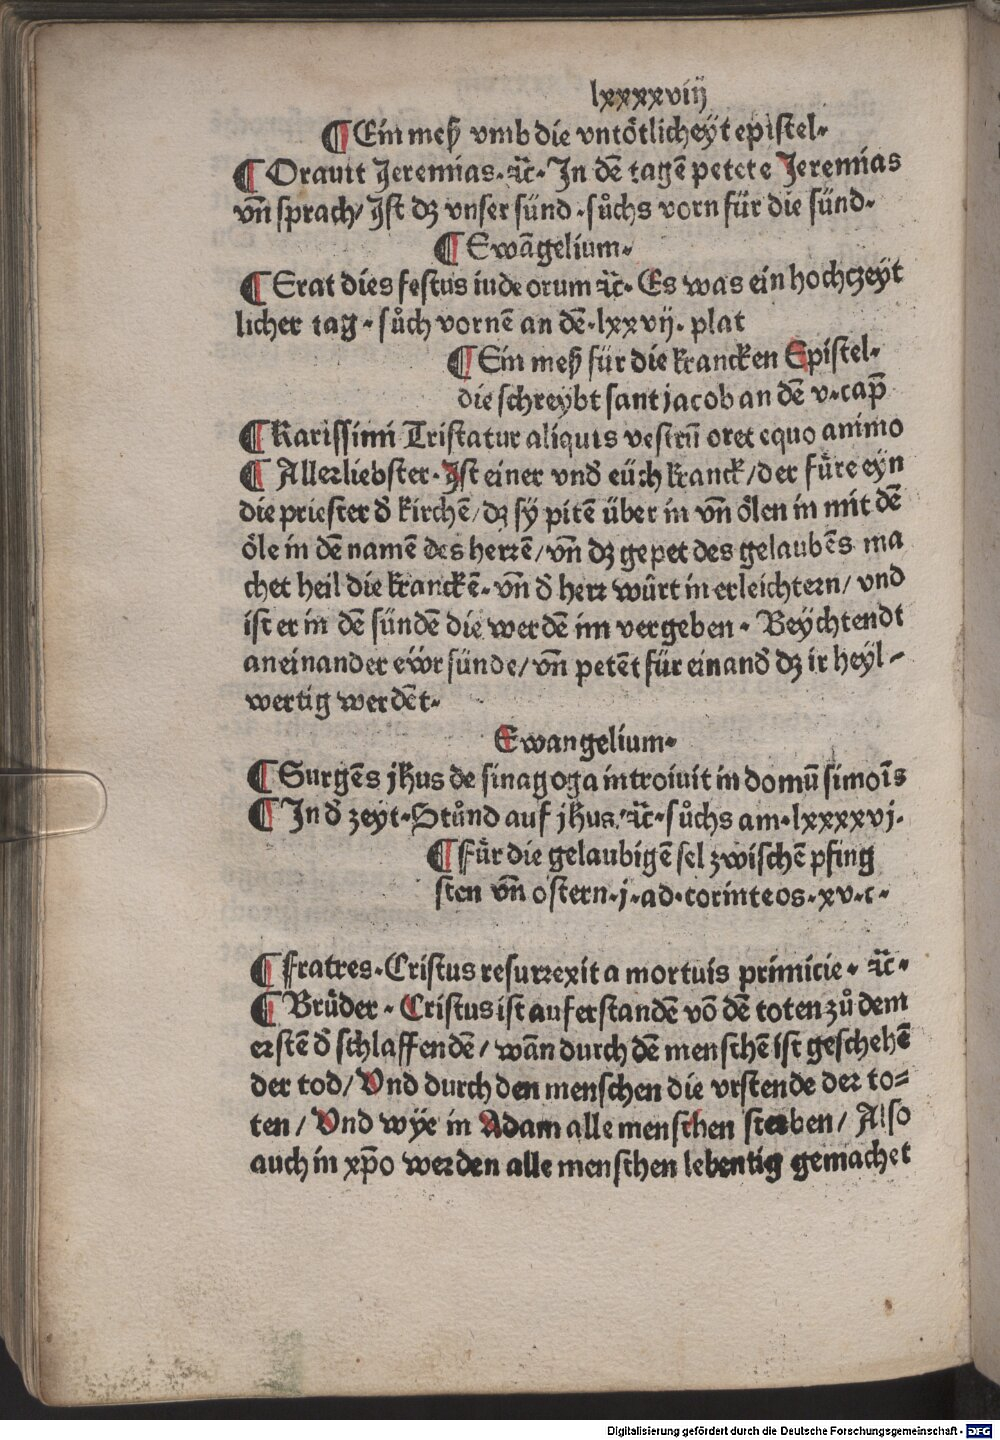 lxxxxviij
¶ Ein meß vmb die vntötlicheyt epistel.
¶ Orauit Jeremias. ⁊c̄. In dē tagē petet e Jeremias
vn̄ sprach/ Ist dz vnser sünd. sůchs vorn für die sünd.
¶ Ewāgelium.
¶ Erat dies festus iudeorum ⁊c̄. Es was ein hochczeyt
licher tag. sůch vornē an dē. lxxvij. plat
¶ Ein meß für die krancken Epistel.
die schreybt sant jacob an dē v. cap̄
¶ Karissimi Tristatur aliquis vestrū oret equo animo
¶ Allerliebster. Ist einer vnđ eüch kranck/ der fůre eyn
die priester đ kirchē/ dz sÿ pitē über in vn̄ ölen in mit dē
öle in dē namē des herrē/ vn̄ dz gepet des gelaubēs ma
chet heil die kranckē. vn̄ đ herr wůrt in erleichtern/ vnd
ist er in dē sündē die werdē im vergeben. Beychtendt
aneinander ewr sünde/ vn̄ petēt für einanđ dz ir heyl-
wertig werdēt.
Ewangelium.
¶ Surgēs jhus de sinagoga introiuit in domū simoīs
¶ In đ zeyt. Stůnd auf jhus. ⁊c̄. sůchs am. lxxxxvj.
¶ Für die gelaubigē sel zwischē pfing
sten vn̄ ostern. j. ad. corinteos. xv. c.
¶ Fratres. Cristus resurrexit a mortuis primicie. ⁊c̄.
¶ Brüder. Cristus ist auferstandē vō dē toten zů dem
erstē đ schlaffendē/ wān durch dē menschē ist geschehē
der tod/ Vnd durch den menschen die vrstende der to=
ten/ Vnd wÿe in Adam alle menschen sterben/ Also
auch in xp̄o werden alle menschen lebentig gemachet
Digitalisierung gefördert durch die Deutsche Forschungsgemeinschaft - DFG